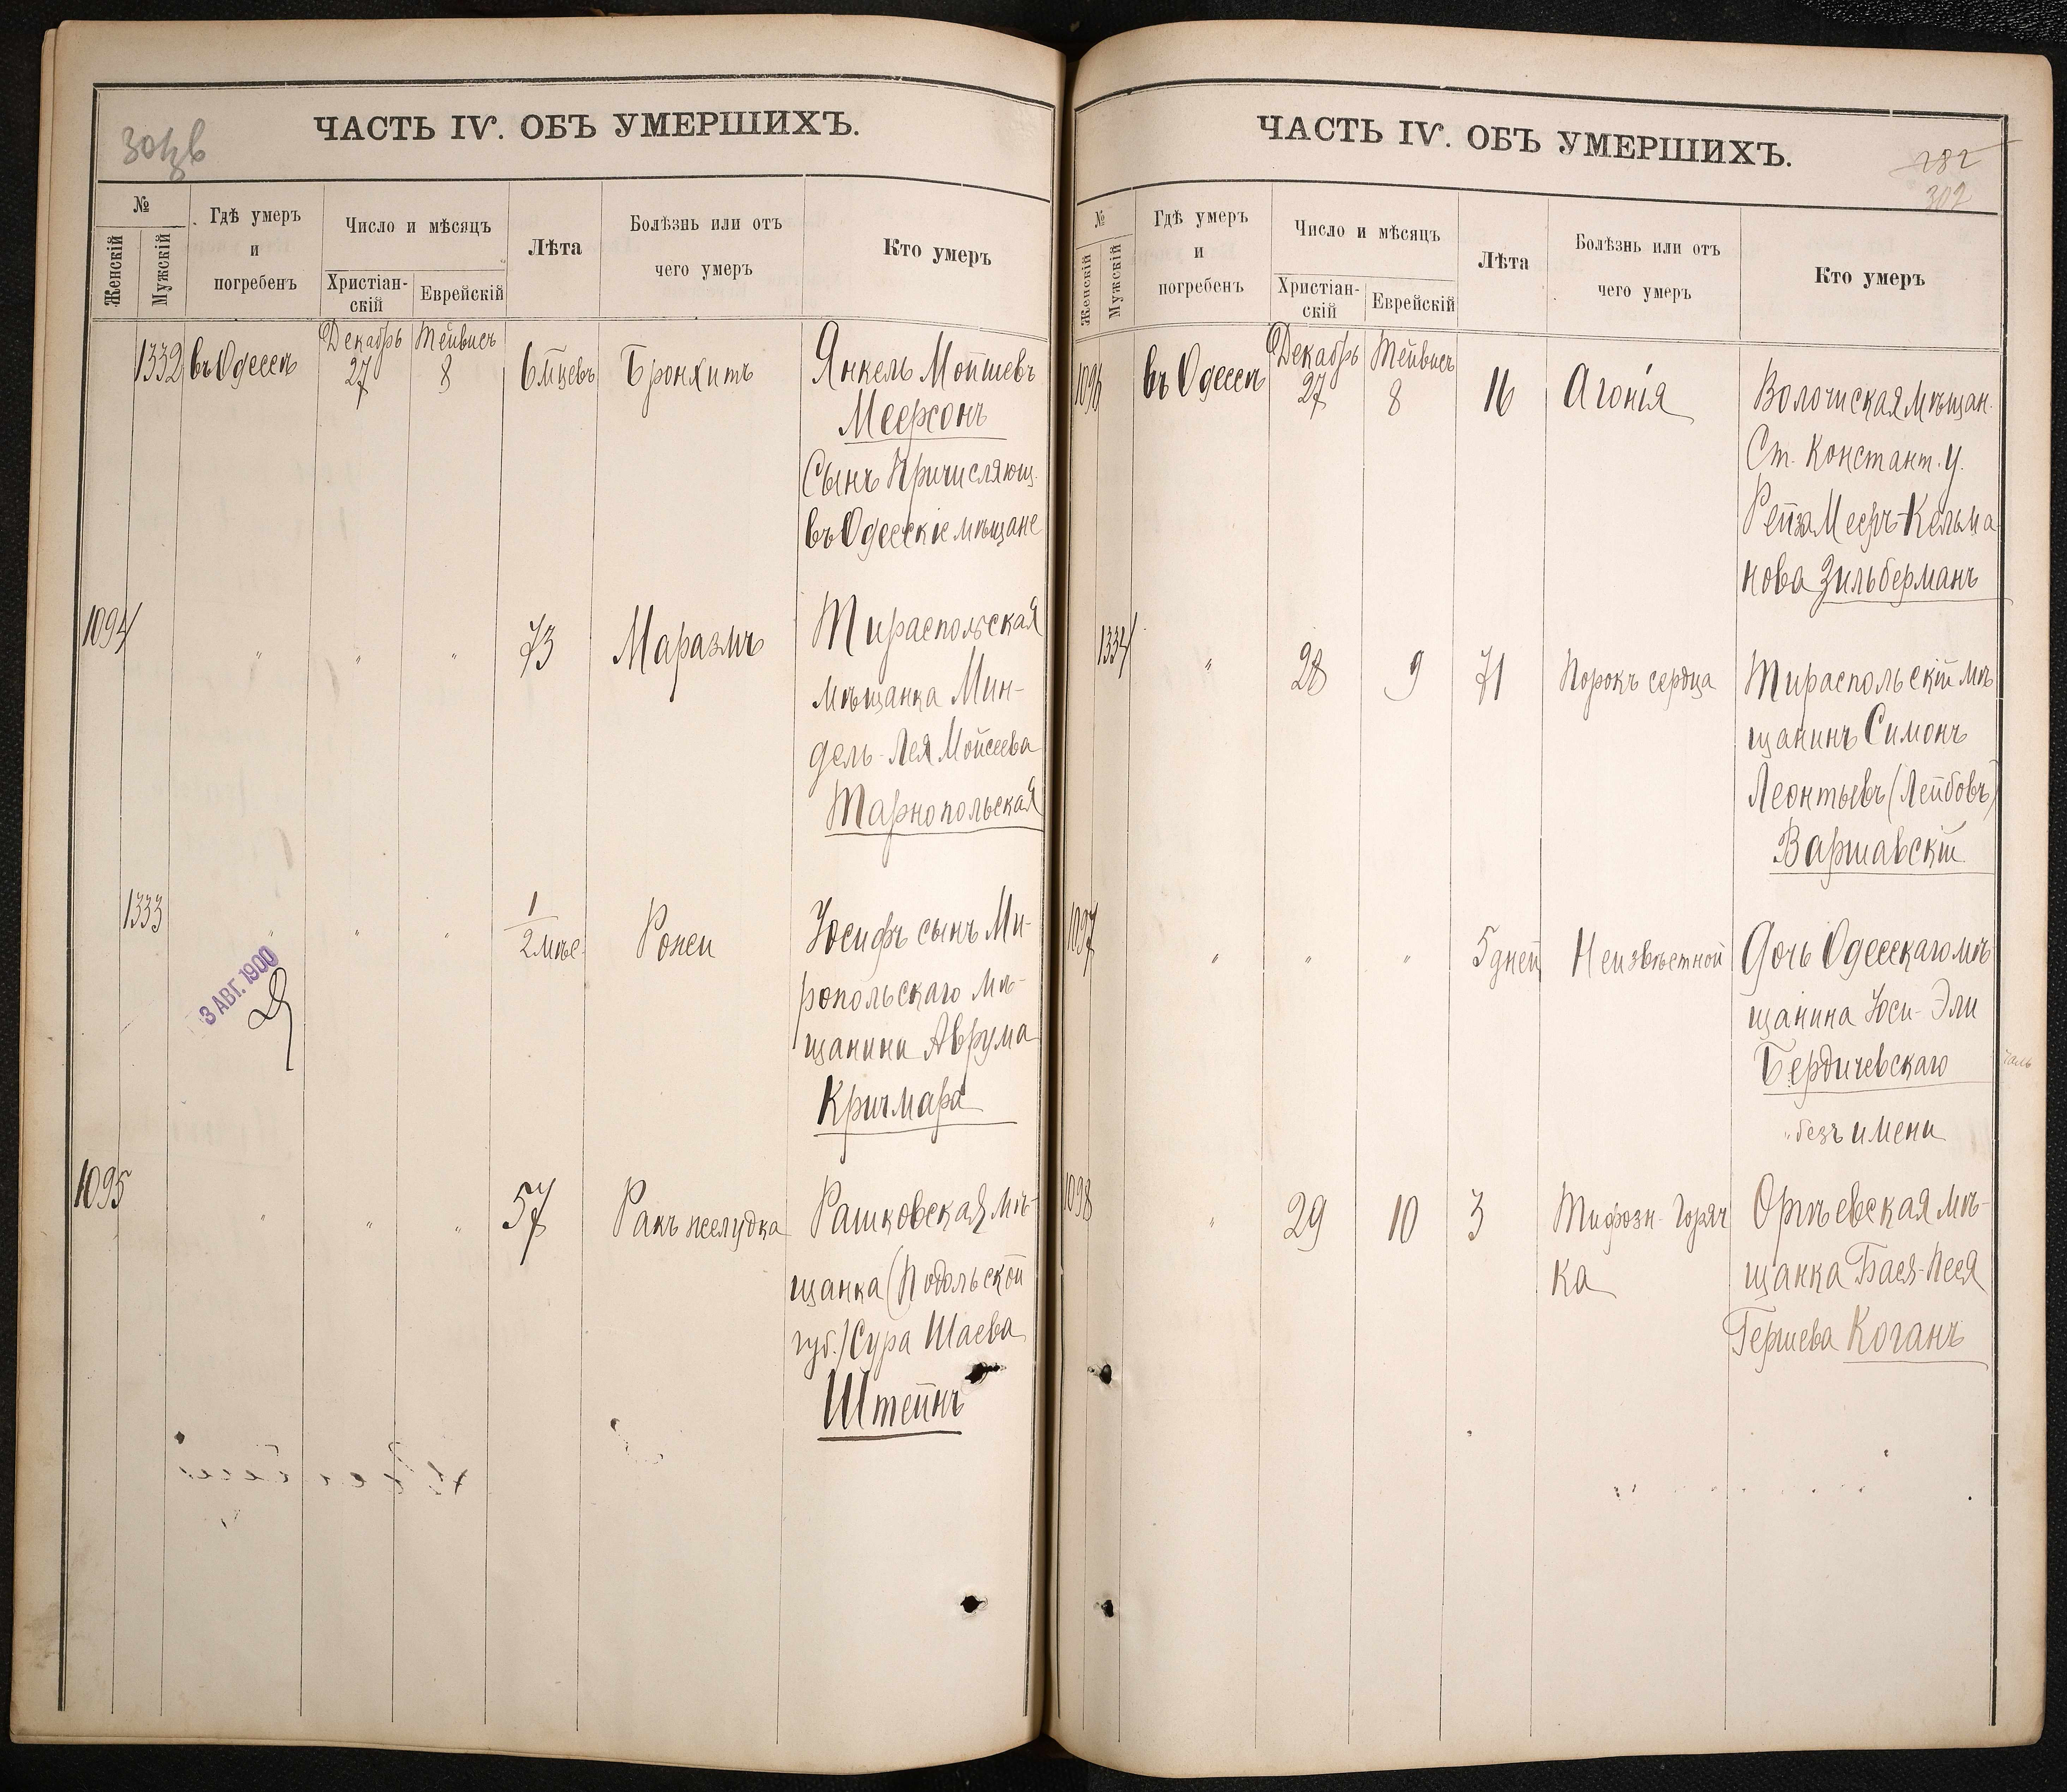 ЧАСТЬ IV. ОБЪ УМЕРШИХЪ.
№
Женскій
Мужскій
Гдѣ умеръ
и
погребенъ
Число и мѣсяцъ
Христіан-
скій
Еврейскій
Лѣта
Болѣзнь или отъ
чего умеръ
Кто умеръ
1332 въ Одессѣ Декабрь 27 Тейвисъ 8 6 мцевъ Бронхитъ Янкель Мойшевъ
Меерсонъ
Сынъ Причисляющ.
въ Одесскіе мѣщане
1094 " " " 73 Маразмъ Тираспольская
мѣщанка Мин-
дель-Лея Мойсеева
Тарнопольская
1333 " " " 1/2 мѣс. Рожи Іосифъ сынъ Ми-
ропольскаго мѣ-
щанина Аврума
Кричмара
3 АВГ. 1900
1095 " " " 57 Ракъ желудка Рашковская мѣ-
щанка (Подольской
губ.) Сура Шаева
Штейнъ
ЧАСТЬ IV. ОБЪ УМЕРШИХЪ.
282
302
№
Женскій
Мужскій
Гдѣ умеръ
и
погребенъ
Число и мѣсяцъ
Христіан-
скій
Еврейскій
Лѣта
Болѣзнь или отъ
чего умеръ
Кто умеръ
1096 въ Одессѣ Декабрь 27 Тейвисъ 8 16 Агонія Волочиская мѣщан.
Ст. Констант. у.
Рейза Мееръ-Кельма
нова Зильберманъ
1334 " 28 9 71 Порокъ сердца Тираспольскій мѣ
щанинъ Симонъ
Леонтьевъ (Лейбовъ)
Варшавскій
1097 " " " 5 дней Неизвѣстной Дочь Одесскаго мѣ-
щанина Юси-Эли
Бердичевскаго
безъ имени
1098 " 29 10 3 Тифозн. Горяч
ка
Оргѣевская мѣ-
щанка Бася-Песя
Гершева Коганъ